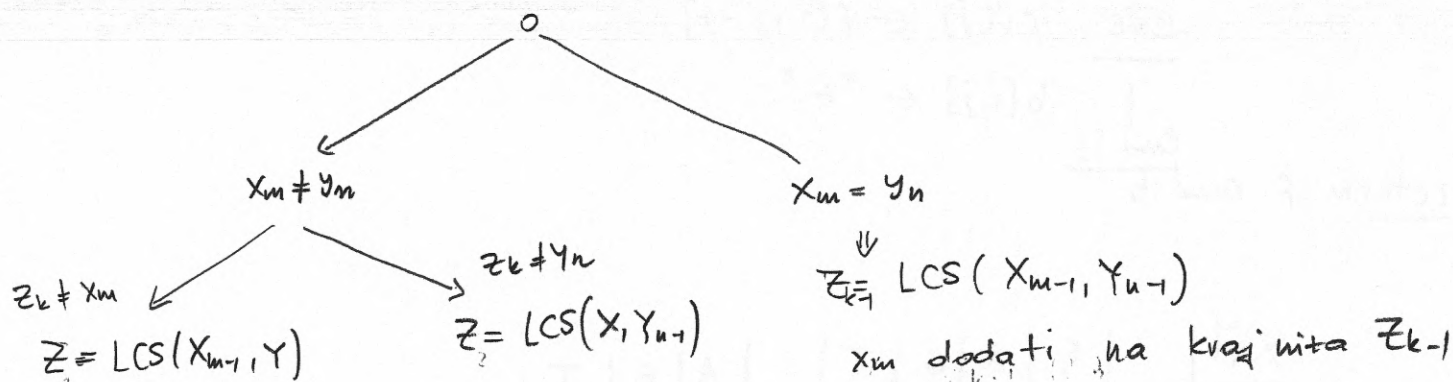 O
x_m ≠ y_n
x_m = y_n
⇓
z_k ≠ x_m
z_k ≠ y_n
Z = LCS(X_{m-1}, Y)
Z = LCS(X, Y_{n-1})
Z_{k-1} = LCS(X_{m-1}, Y_{n-1})
x_m dodati na kraj niza Z_{k-1}